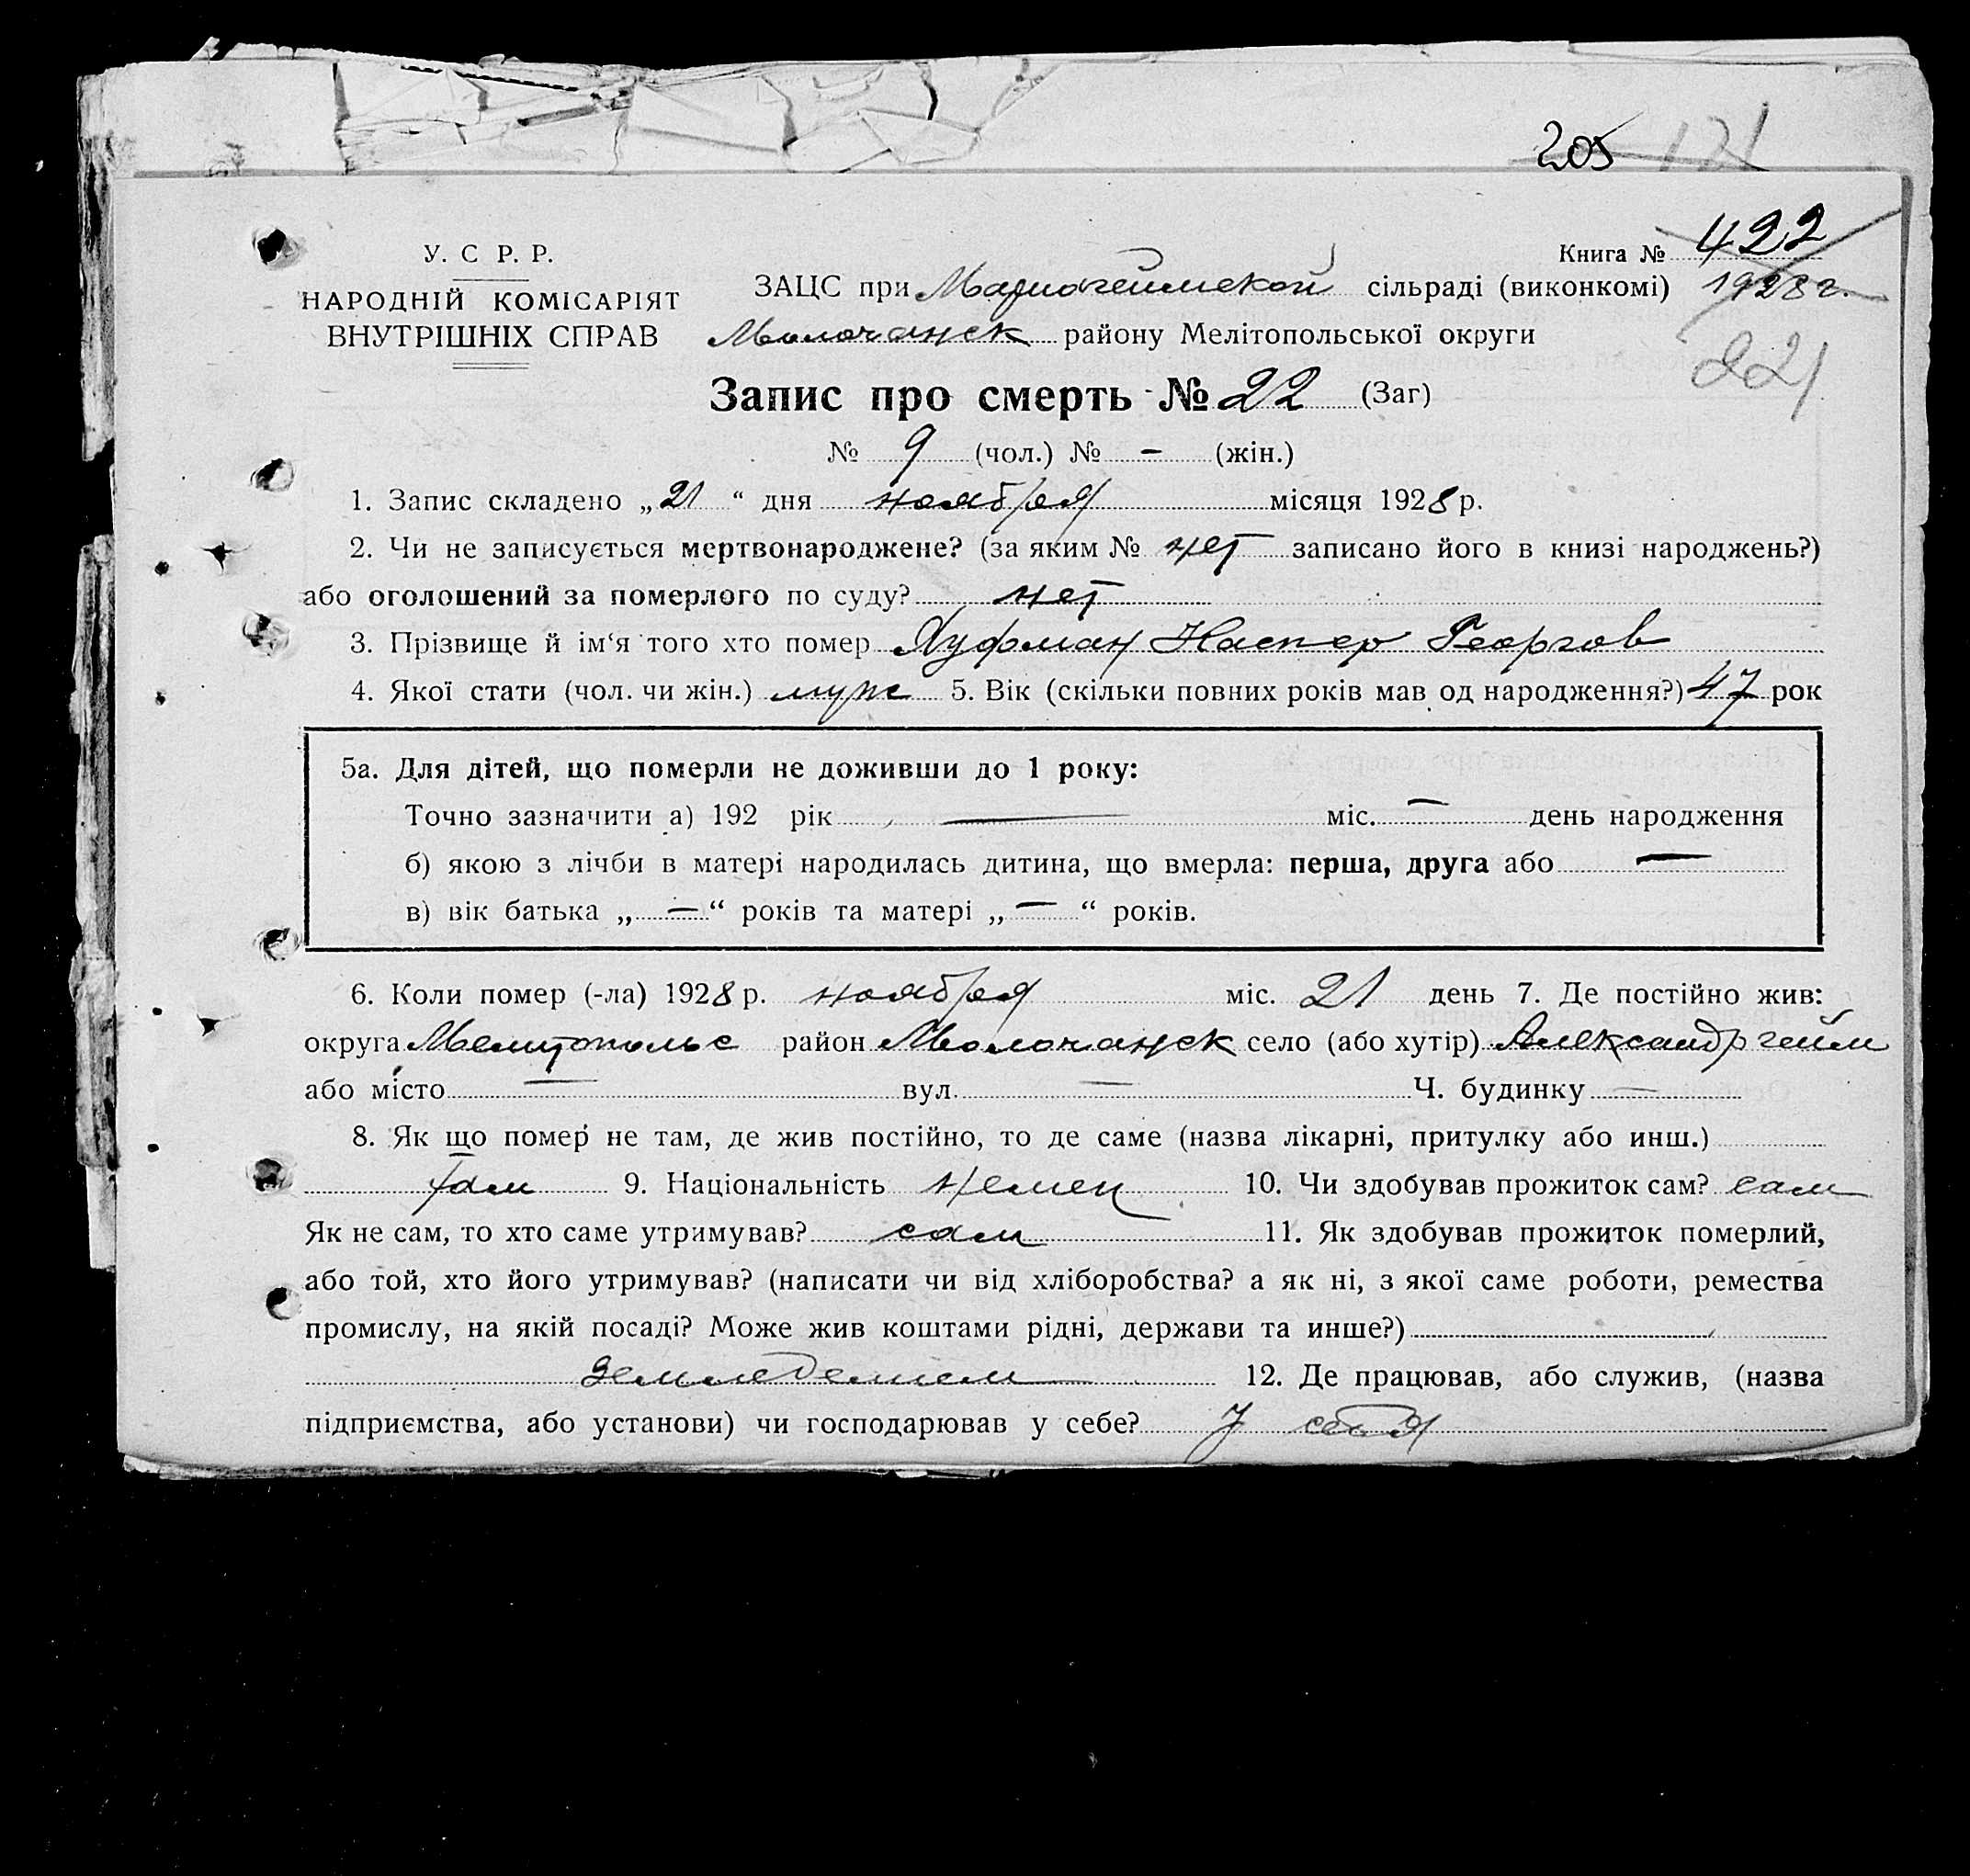 205 171
У. С Р. Р.
НАРОДНІЙ КОМІСАРІЯТ
ВНУТРІШНІХ СПРАВ
Книга № 422
ЗАЦС при сільраді (виконкомі) 1928 г.
Молочанск району Мелітопольської округи
221
Запис про смерть № 22 (Заг)
№ 9 (чол.) № – (жін.)
1. Запис складено „21“ дня ноября місяця 1928 р.
2. Чи не записується мертвонароджене? (за яким № нет записано його в книзі народжень?)
або оголошений за померлого по суду? нет
3. Прізвище й ім‘я того хто помер Хуфман Каспер Георгов
4. Якої стати (чол. чи жін.) муж 5. Вік (скільки повних років мав од народження?) 47 рок
5а. Для дітей, що померли не доживши до 1 року:
Точно зазначити а) 192 рік — міс. — день народження
б) якою з лічби в матері народилась дитина, що вмерла: перша, друга або —
в) вік батька „—“ років та матері „—“ років.
6. Коли помер (-ла) 1928 р. ноября міс. 21 день 7. Де постійно жив:
округа Мелитопольс район Молочанск село (або хутір) Александргейм
або місто — вул. — Ч. будинку —
8. Як що помер не там, де жив постійно, то де саме (назва лікарні, притулку або инш.)
там 9. Національність Немец 10. Чи здобував прожиток сам? сам
Як не сам, то хто саме утримував? сам 11. Як здобував прожиток померлий,
або той, хто його утримував? (написати чи від хліборобства? а як ні, з якої саме роботи, ремества
промислу, на якій посаді? Може жив коштами рідні, держави та инше?)
Земледелием 12. Де працював, або служив, (назва
підприємства, або установи) чи господарював у себе? У себя